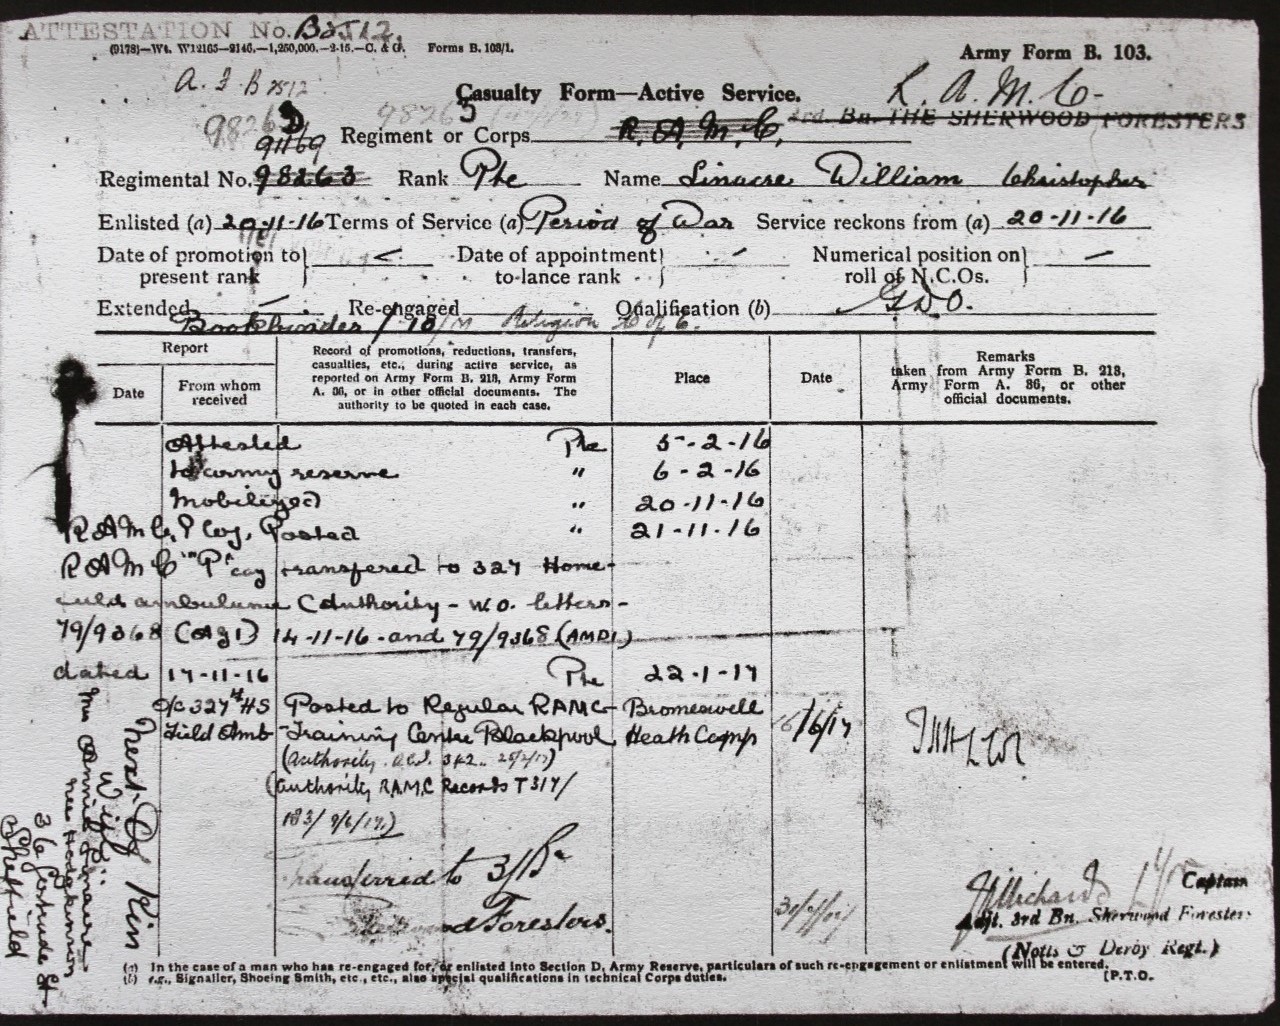 ATTESTATION No. B2512.
(9178)—Wt. W12165—9146.—1,250,000.—2-15.—C. & G. Forms B. 103/1.
Army Form B. 103.
A. F. B 2512
Casualty Form—Active Service.
R. A. M. C-
98263 98263
91169 Regiment or Corps R. A. M. C. 3rd. Bn. THE SHERWOOD FORESTERS
Regimental No. 98263 Rank Pte Name Linacre William Christopher
Enlisted (a) 20-11-16 Terms of Service (a) Period of War Service reckons from (a) 20-11-16
Date of promotion to present rank Date of appointment to lance rank Numerical position on roll of N.C.Os.
Extended Re-engaged Qualification (b) G.D.O.
Bookbinder / Religion C of E.
Report
Date
From whom received
Record of promotions, reductions, transfers, casualties, etc., during active service, as reported on Army Form B. 213, Army Form A. 36, or in other official documents. The authority to be quoted in each case.
Place
Date
Remarks
taken from Army Form B. 213, Army Form A. 36, or other official documents.
Attested Pte 5-2-16
to army reserve " 6-2-16
Mobilized " 20-11-16
R A M C, P Coy, Posted " 21-11-16
R A M C "P" coy transfered to 327 Home-
field ambulance (Authority - W.O. letters-
79/9368 (AG1) 14-11-16 - and 79/9368 (AMD1)
dated 17-11-16 Pte 22-1-17
O/C 327th HS Posted to Regular RAMC Bromeswell
Field Amb Training Centre Blackpool Heath Camp 16/6/17
(Authority. A.C.I. 342.
(authority RAMC Records T317/
183/ 9/6/17.)
Transferred to 3/Bn
Sherwood Foresters.
Captain
Adjt. 3rd Bn. Sherwood Foresters
(Notts & Derby Regt.)
Next Of Kin
Wife:-
Mrs Annie Linacre
nee Hodgkinson
36 Gertrude St
Sheffield
(a) In the case of a man who has re-engaged for, or enlisted into Section D, Army Reserve, particulars of such re-engagement or enlistment will be entered.
(b) e.g., Signaller, Shoeing Smith, etc., etc., also special qualifications in technical Corps duties. [P.T.O.